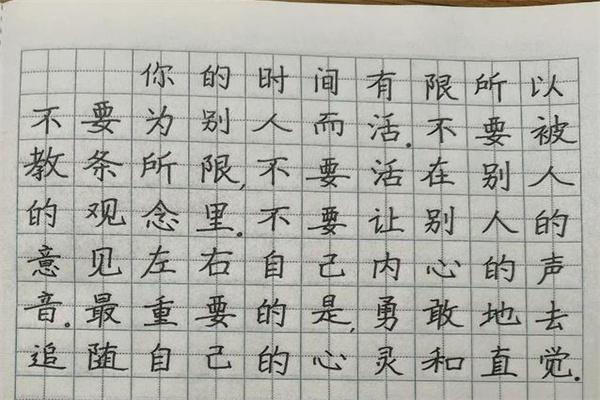 你的时间有限所以
不要为别人而活.不要被
教条所限,不要活在别人
的观念里.不要让别人的
意见左右自己内心的声
音.最重要的是,勇敢地去
追随自己的心灵和直觉.